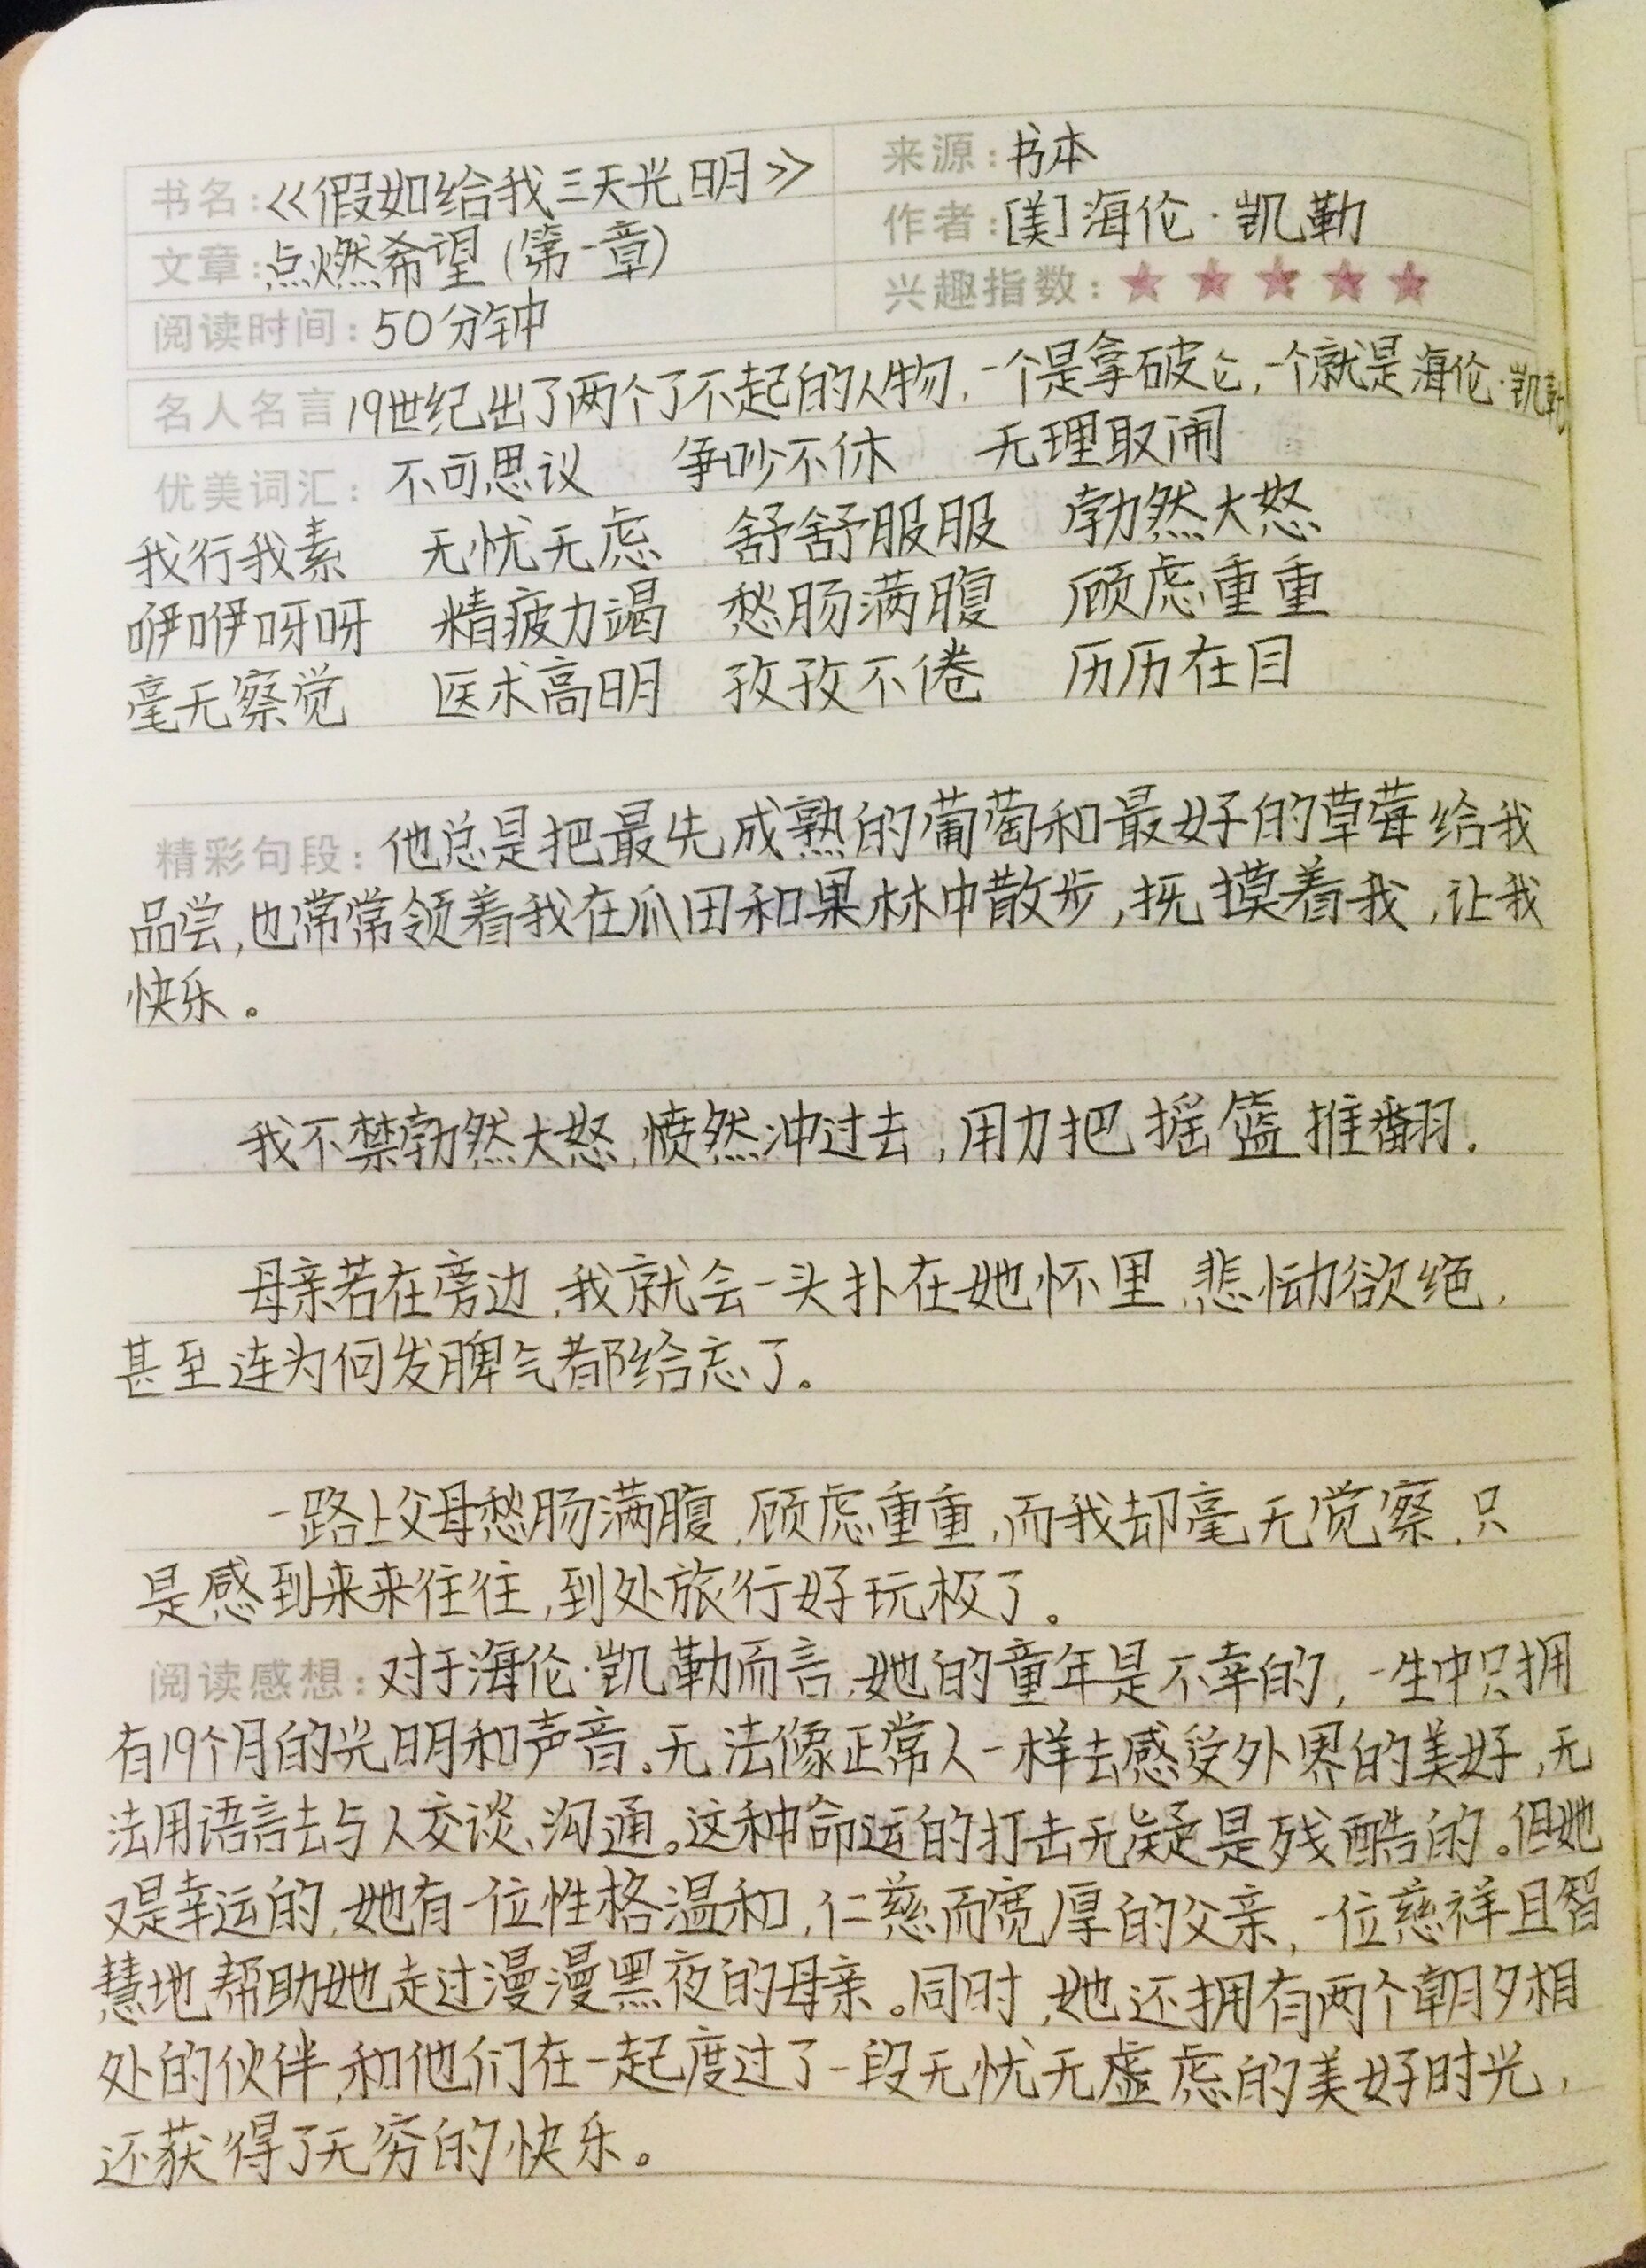 书名:《假如给我三天光明》
来源:书本
作者:[美]海伦·凯勒
文章:点燃希望(第一章)
兴趣指数:★★★★★
阅读时间:50分钟
名人名言 19世纪出了两个了不起的人物,一个是拿破仑,一个就是海伦·凯勒
优美词汇: 不可思议 争吵不休 无理取闹
我行我素 无忧无虑 舒舒服服 勃然大怒
咿咿呀呀 精疲力竭 愁肠满腹 顾虑重重
毫无察觉 医术高明 孜孜不倦 历历在目
精彩句段: 他总是把最先成熟的葡萄和最好的草莓给我
品尝,也常常领着我在瓜田和果林中散步,抚摸着我,让我
快乐。
我不禁勃然大怒,愤然冲过去,用力把摇篮推翻.
母亲若在旁边,我就会一头扑在她怀里,悲恸欲绝,
甚至连为何发脾气都给忘了。
一路上父母愁肠满腹,顾虑重重,而我却毫无觉察,只
是感到来来往往,到处旅行好玩极了。
阅读感想: 对于海伦·凯勒而言,她的童年是不幸的,一生中只拥
有19个月的光明和声音。无法像正常人一样去感受外界的美好,无
法用语言去与人交谈、沟通。这种命运的打击无疑是残酷的。但她
又是幸运的,她有一位性格温和,仁慈而宽厚的父亲,一位慈祥且智
慧地帮助她走过漫漫黑夜的母亲。同时,她还拥有两个朝夕相
处的伙伴,和他们在一起度过了一段无忧无虑的美好时光,
还获得了无穷的快乐。